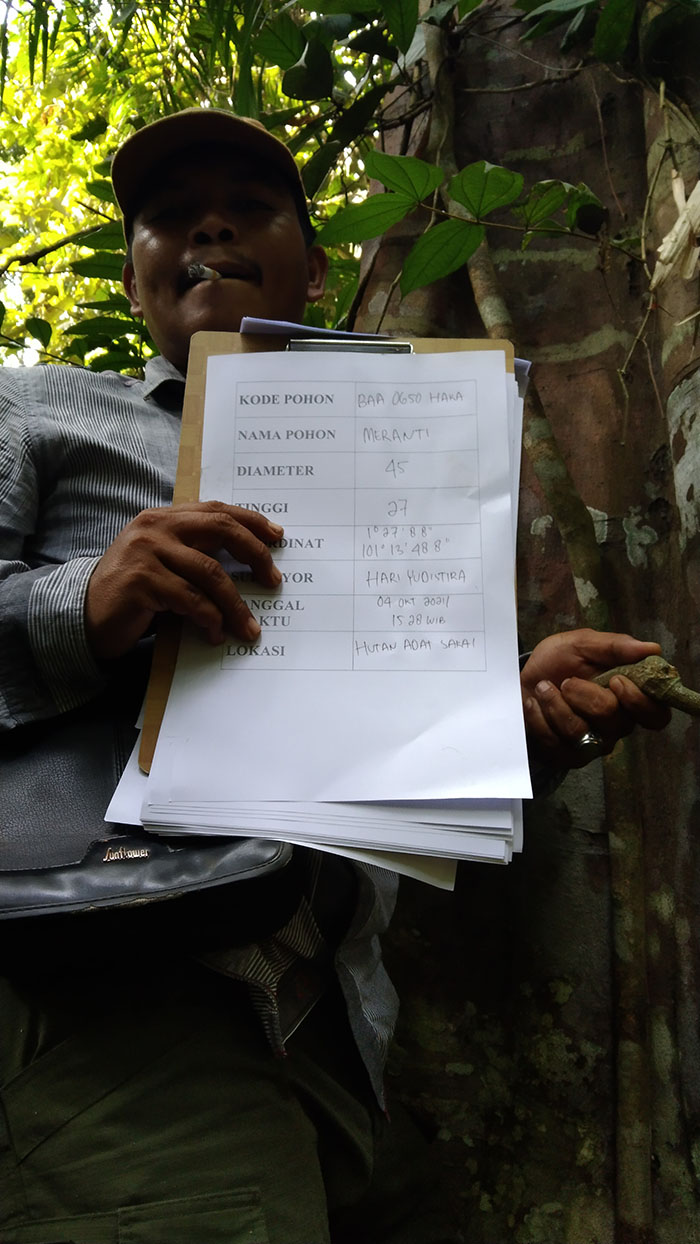 KODE POHON BAA 0650 HAKA
NAMA POHON MERANTI
DIAMETER 45
TINGGI 27
RDINAT 1° 27' 8 8"
101° 13' 48 8"
SU YOR HARI YUDISTIRA
ANGGAL 04 OKT 2021/
AKTU 15 28 WIB
LOKASI HUTAN ADAT SAKAI
Sunflower